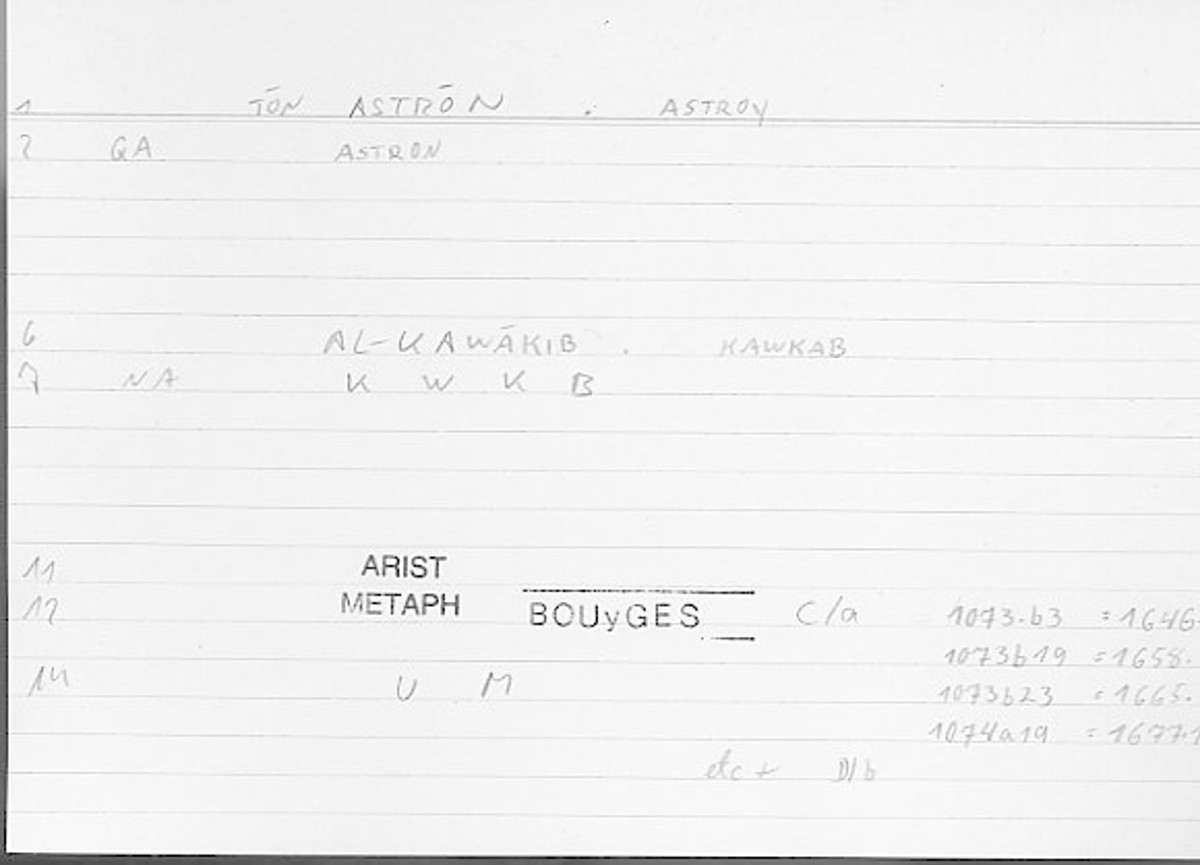 1 TŌN ASTRŌN . ASTROY
2 GA ASTRON
6 AL-KAWĀKIB . KAWKAB
7 NA K W K B
11 ARIST
12 METAPH BOUyGES C/a 1073.b3 = 1646.
1073b19 = 1658.
14 U M 1073b23 = 1665.
1074a19 = 1677.1
etc + D/b